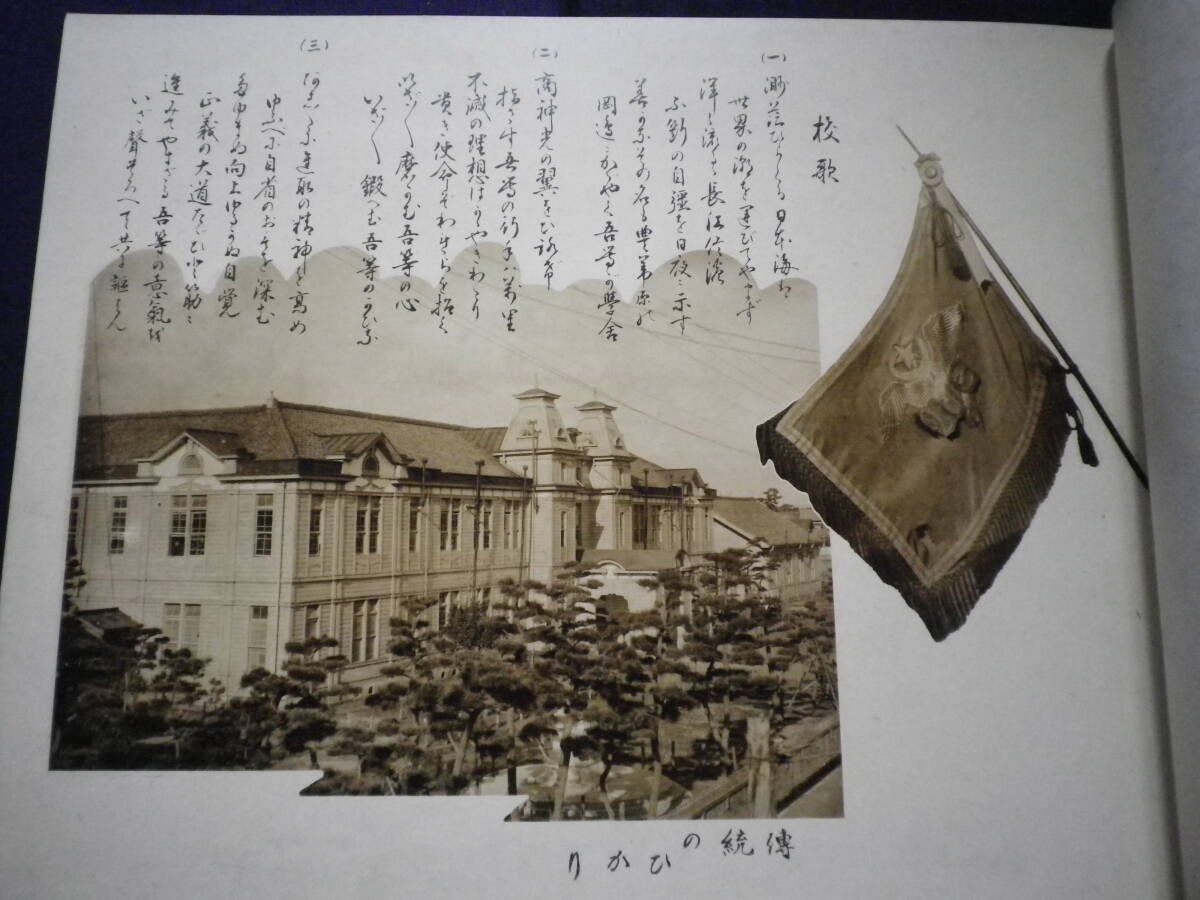 校歌
(一) 渺茫ひらくる日本海は
世界の潮を運びてやまず
洋々流るゝ長江信濃
不斷の自彊を日夜に示す
善かなその名も豊葦原の
岡邊にかゞやく吾等が學舎
(二) 商神光の翼をひろげ
指さす吾等の行手は萬里
不滅の理想はかゞやきわたり
貴き使命ぞわれらを招く
いざ〳〵磨かむ吾等の心
いざ〳〵鍛へむ吾等のかひな
(三) 進取の精神を高め
ゆふべに自省の を深む
たゆまぬ向上ゆるがぬ自覚
正義の大道たゞひと筋に
進みてやまざる吾等の意氣を
いざ聲そろへて共に謳はん
傳統のひかり